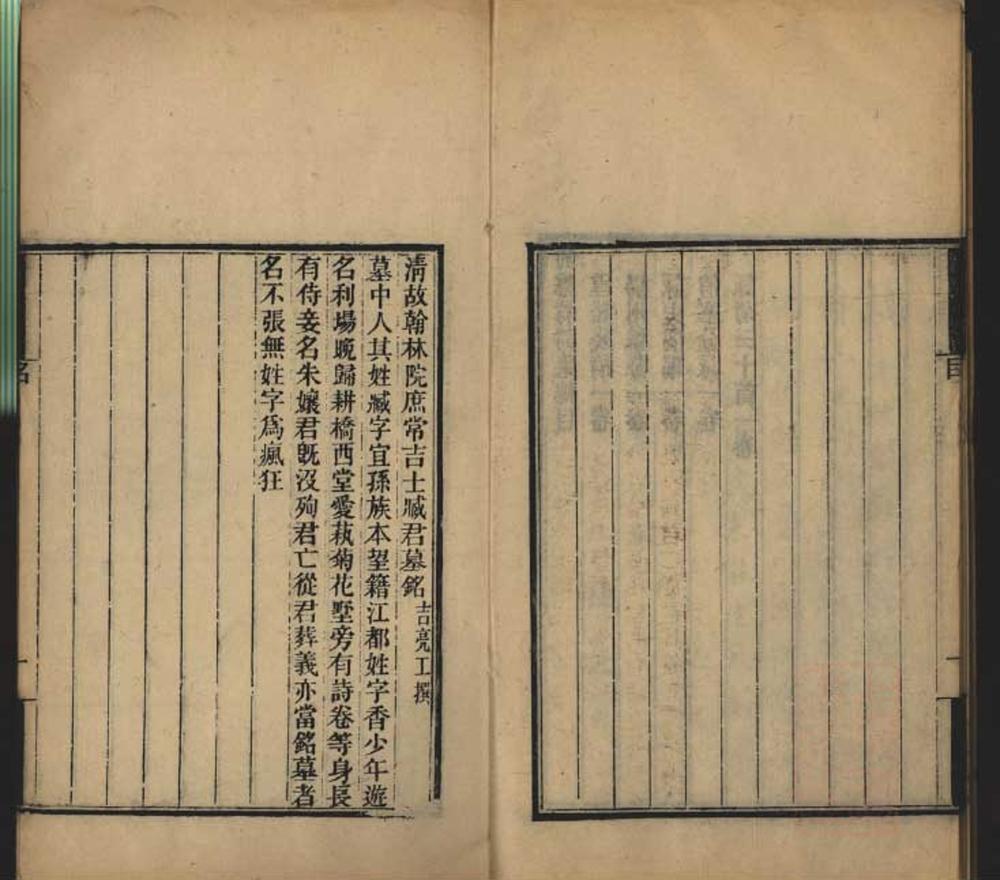 清故翰林院庶常吉士臧君墓銘 吉亮工撰
墓中人其姓臧字宜孫族本望籍江都姓字香少年遊
名利場晚歸耕橋西堂愛萟菊花墅旁有詩卷等身長
有侍妾名朱孃君旣沒殉君亡從君葬義亦當銘墓者
名不張無姓字爲瘋狂
銘
一
目
一